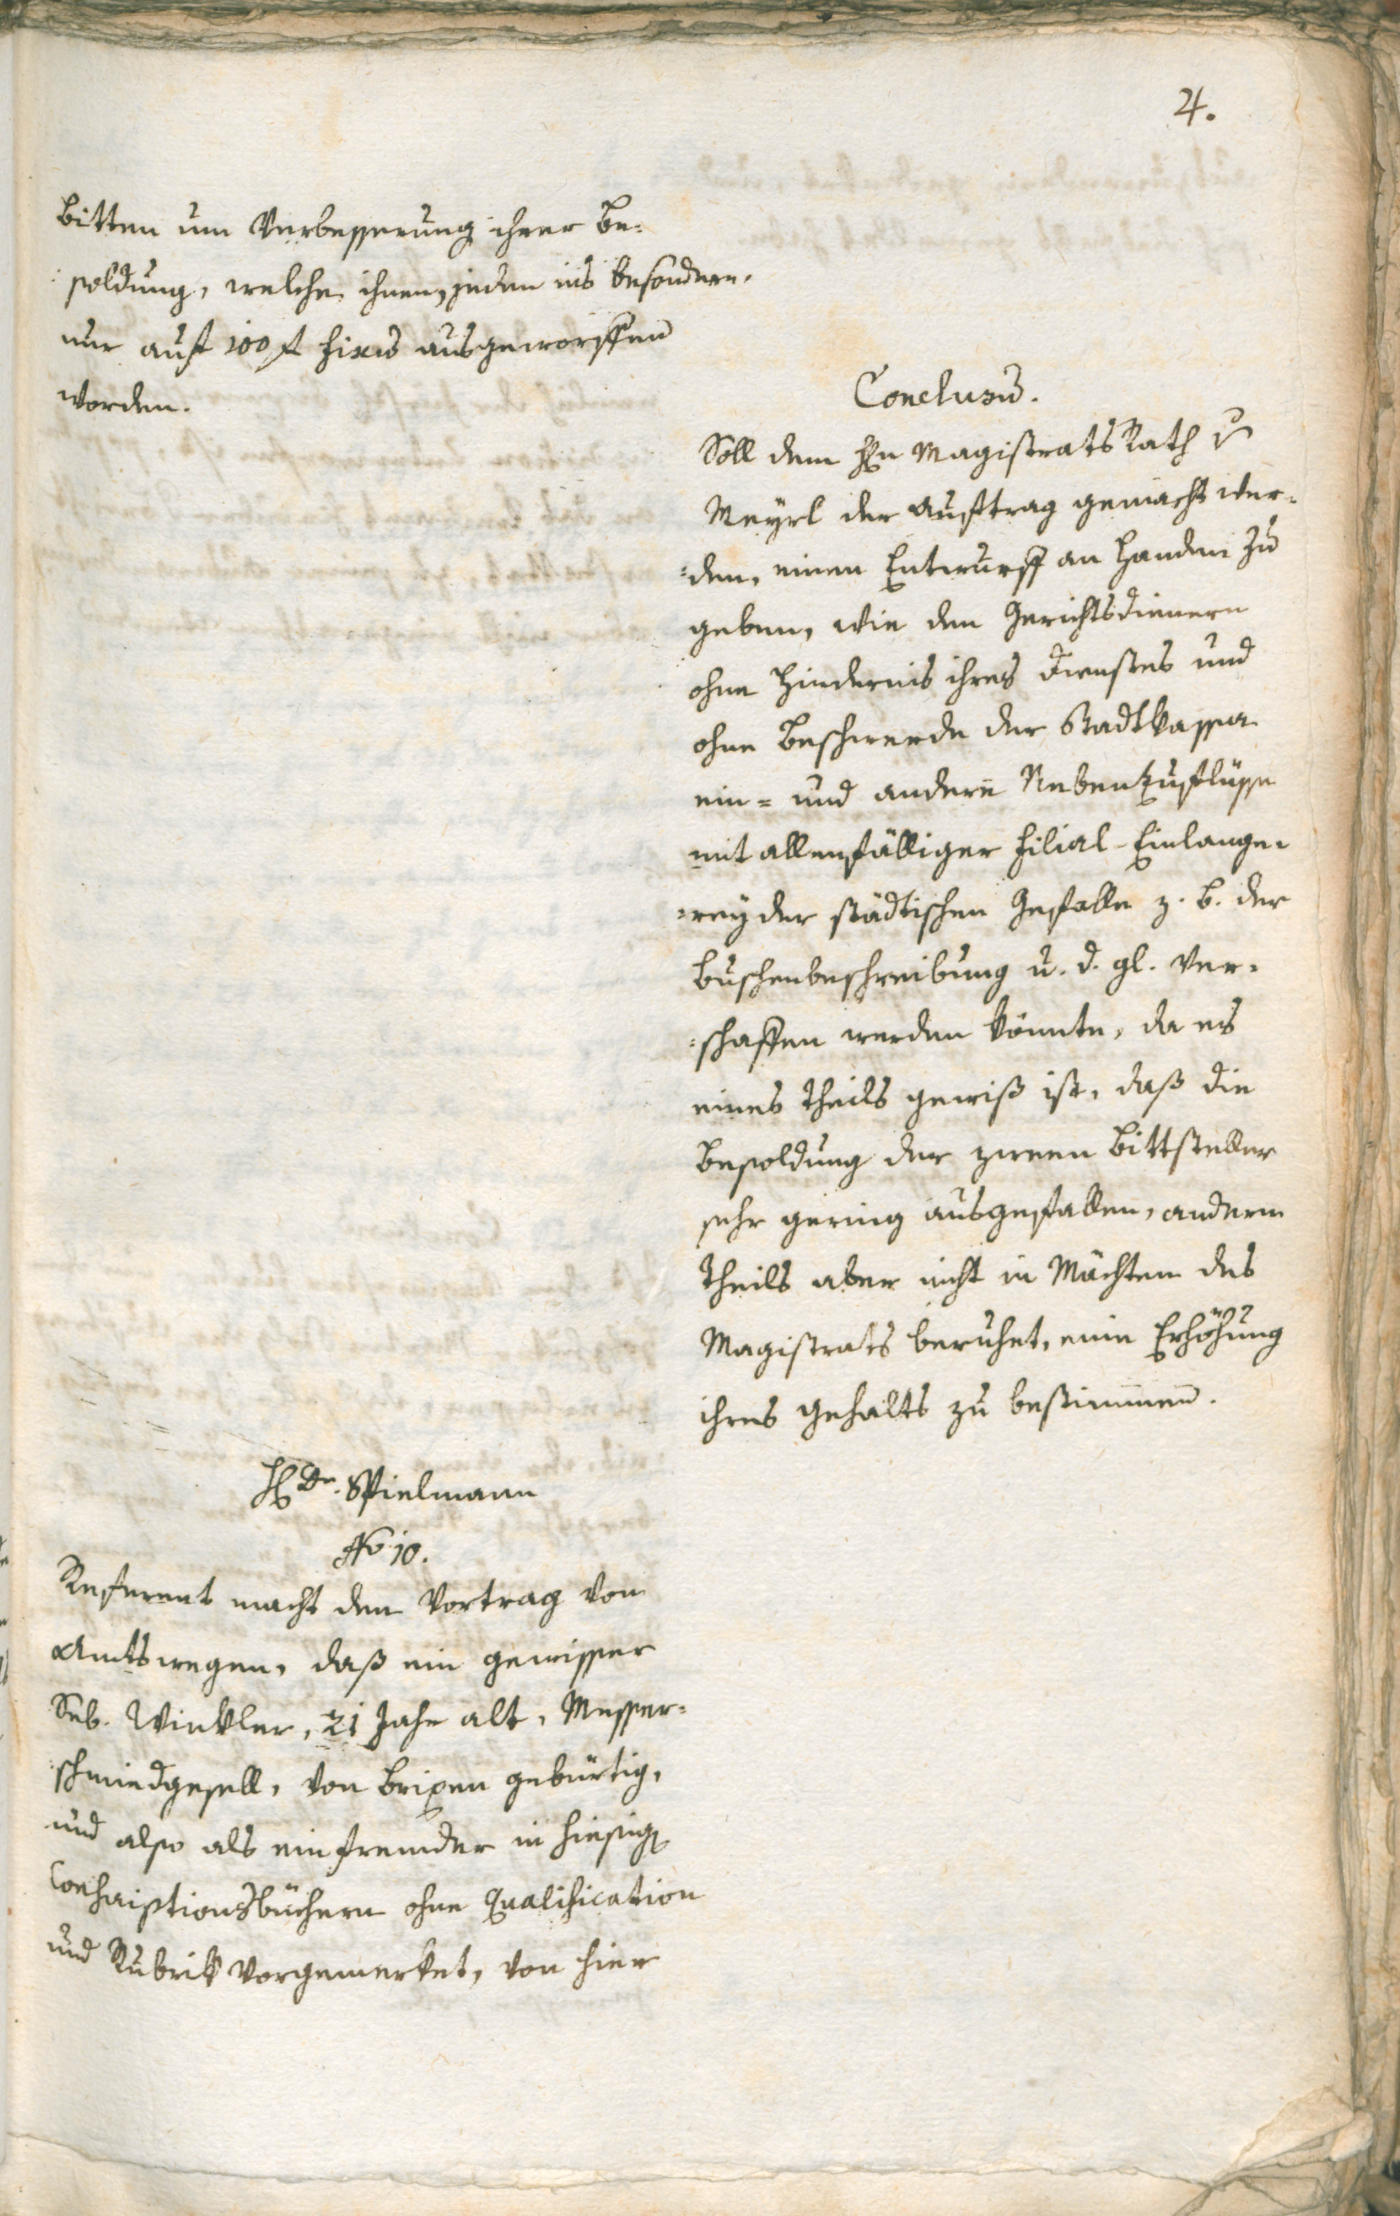 4.
bitten um Verbesserung ihrer Be-
soldung, welche ihnen, jeden ins besondere,
nur auf 100 f fixirt ausgeworffen
worden.
Conclusū.
Soll dem Hn MagistratsRath v
Meyrl der Aufttrag gemacht wer-
den, einen Entwurff an Handen zu
geben, wie den Gerichtsdienern
ohne Hindernis ihres Dienstes und
ohne Beschwerde der Stadtkassa
ein- und andere Nebenzuflüsse
mit allenfälliger Filial-Einlange-
rey der städtischen Gefälle z. B. der
Buschenbeschreibung u. d. gl. ver-
schaffen werden könnte, da es
eines Theils gewiß ist, daß die
Besoldung der zween Bittsteller
sehr gering ausgefallen, andern
Theils aber nicht in Mächten des
Magistrats beruhet, eine Erhöhung
ihres Gehalts zu bestimmen.
H Dr. Spielmann
No 10.
Referent macht den Vortrag von
Amtswegen, daß ein gewisser
Seb. Winkler, 21 Jahr alt, Messer-
schmiedgesell, von Brixen gebürtig,
und also als ein fremder in hiesigen
Conscriptionsbüchern ohne Qualification
und Rubrik vorgemerket, von hier